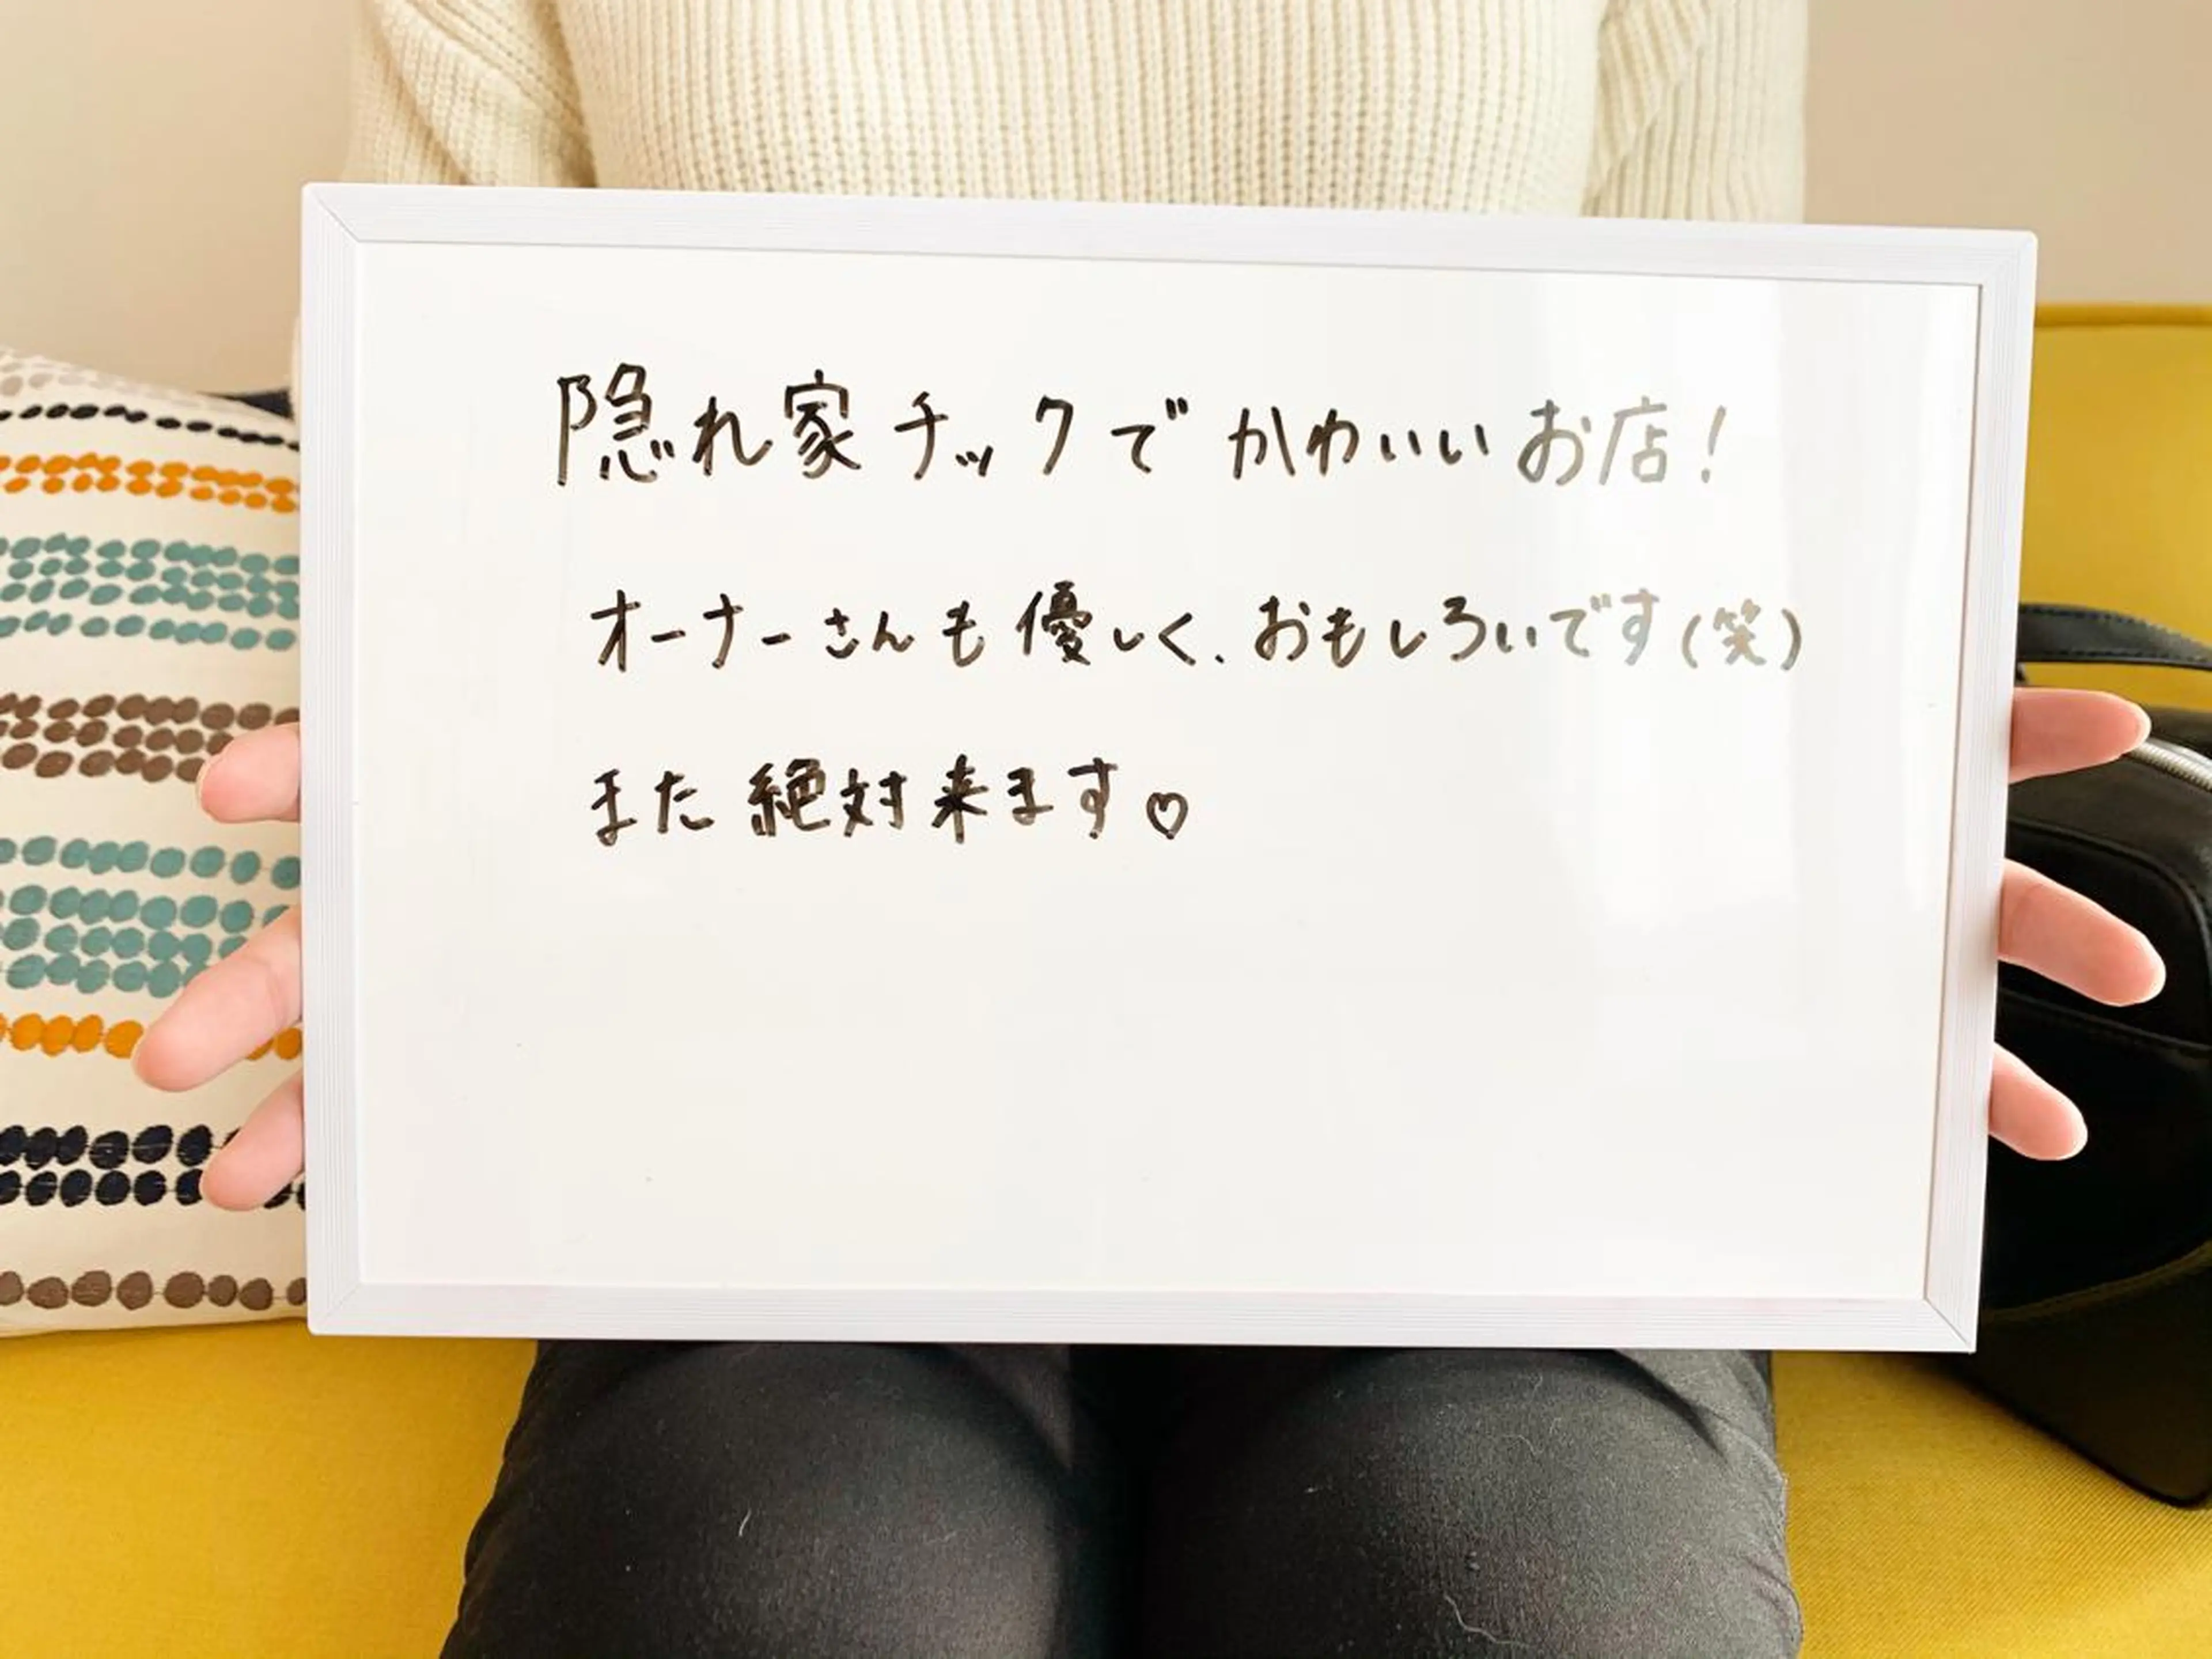 隠れ家チックでかわいいお店!
オーナーさんも優しく、おもしろいです(笑)
また絶対来ます♡